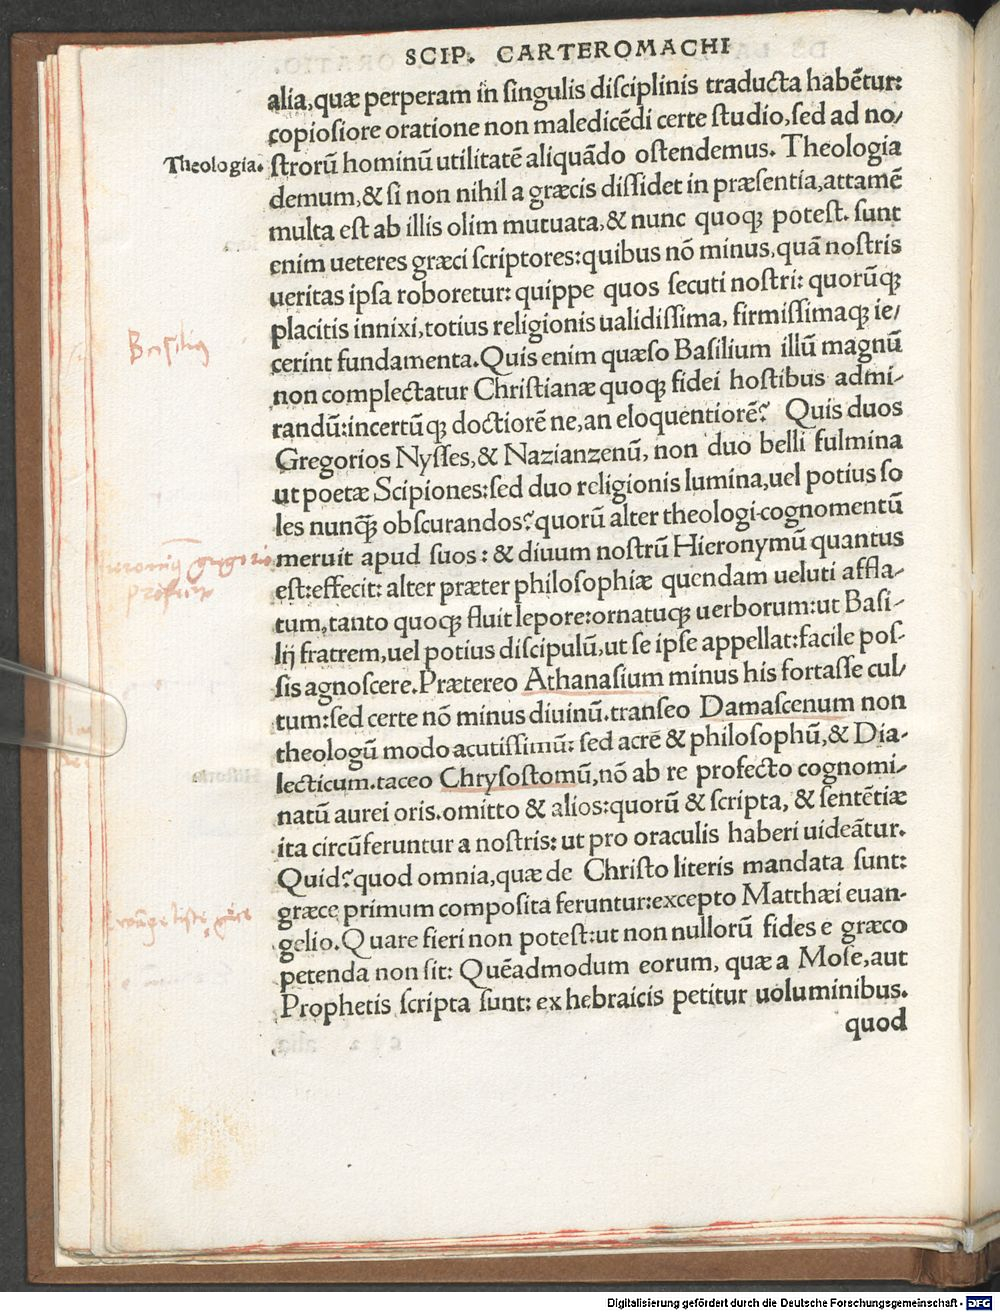 SCIP. CARTEROMACHI
alia,quæ perperam in singulis disciplinis traducta habẽtur:
copiosiore oratione non maledicẽdi certe studio,sed ad no/
Theologia. strorũ hominũ utilitatẽ aliquãdo ostendemus. Theologia
demum,& si non nihil a græcis dissidet in præsentia,attamẽ
multa est ab illis olim mutuata,& nunc quoqꝫ potest. sunt
enim ueteres græci scriptores:quibus nõ minus,quã nostris
ueritas ipsa roboretur: quippe quos secuti nostri: quorũqꝫ
placitis innixi,totius religionis ualidissima, firmissimaqꝫ ie/
Basilius
cerint fundamenta.Quis enim quæso Basilium illũ magnũ
non complectatur Christianæ quoqꝫ fidei hostibus admi/
randũ:incertũqꝫ doctiorẽ ne,an eloquentiorẽ? Quis duos
Gregorios Nysses,& Nazianzenũ, non duo belli fulmina
ut poetæ Scipiones:sed duo religionis lumina,uel potius so
les nunqꝫ̃ obscurandos?quorũ alter theologi cognomentũ
meruit apud suos: & diuum nostrũ Hieronymũ quantus
est:effecit: alter præter philosophiæ quendam ueluti affla/
tum,tanto quoqꝫ fluit lepore:ornatuqꝫ uerborum:ut Basi/
lij fratrem,uel potius discipulũ,ut se ipse appellat:facile pos/
sis agnoscere.Prætereo Athanasium minus his fortasse cul/
tum:sed certe nõ minus diuinũ.transeo Damascenum non
theologũ modo acutissimũ: sed acrẽ & philosophũ,& Dia-
lecticum.taceo Chrysostomũ,nõ ab re profecto cognomi/
natũ aurei oris.omitto & alios:quorũ & scripta, & sentẽtiæ
ita circũferuntur a nostris: ut pro oraculis haberi uideãtur.
Quid?quod omnia,quæ de Christo literis mandata sunt:
græce primum composita feruntur:excepto Matthæi euan-
gelio.Quare fieri non potest:ut non nullorũ fides e græco
petenda non sit: Quẽadmodum eorum, quæ a Mose,aut
Prophetis scripta sunt: ex hebraicis petitur uoluminibus.
quod
Digitalisierung gefördert durch die Deutsche Forschungsgemeinschaft - DFG